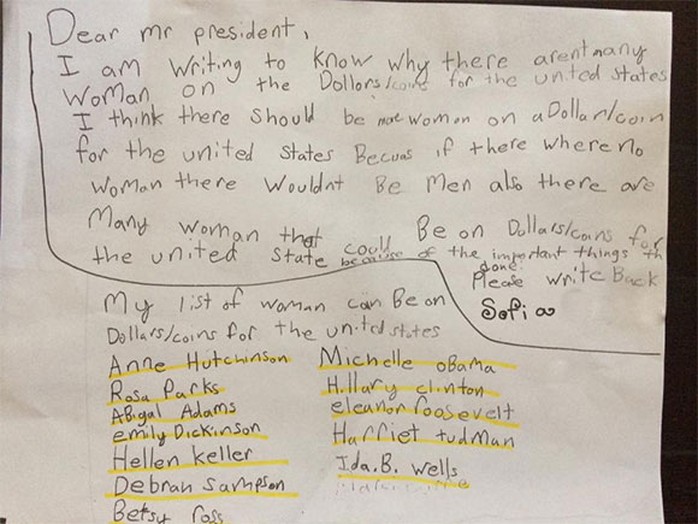 Dear mr president,
I am writing to know why there arent many
woman on the Dollors/coins for the united states
I think there should be more woman on a Dollar/coin
for the united states Becuas if there where no
woman there Wouldnt Be Men also there are
Many woman that could Be on Dollars/coins for
the united state because of the important things th
done.
Please write Back
Sofia
My list of woman can Be on
Dollars/coins for the united states
Anne Hutchinson
Rosa Parks
Abigal Adams
emily Dickinson
Hellen keller
Debrah sampson
Betsy ross
Michelle oBama
Hillary clinton
eleanor roosevelt
Harriet tudman
Ida.B. wells